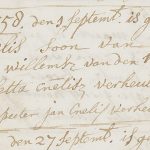 758. den 9 Septemb. is g
elis soon van
willemse van den
etta Cnelisz verheu
peeter jan Cnelisz verheu
den 27 Septemb. is g